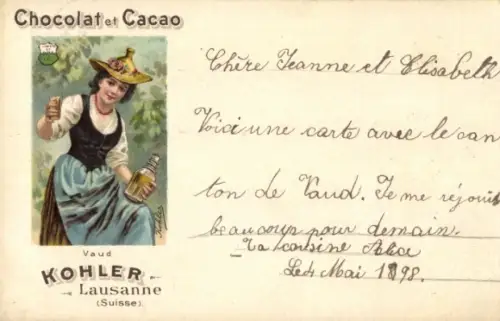 Chocolat et Cacao
Vaud
KOHLER
Lausanne
(Suisse).
Chère Jeanne et Elisabeth
Voici une carte avec le can
ton de Vaud. Je me réjouis
beaucoup pour demain.
Ta cousine Alice
Le 4 Mai 1898.